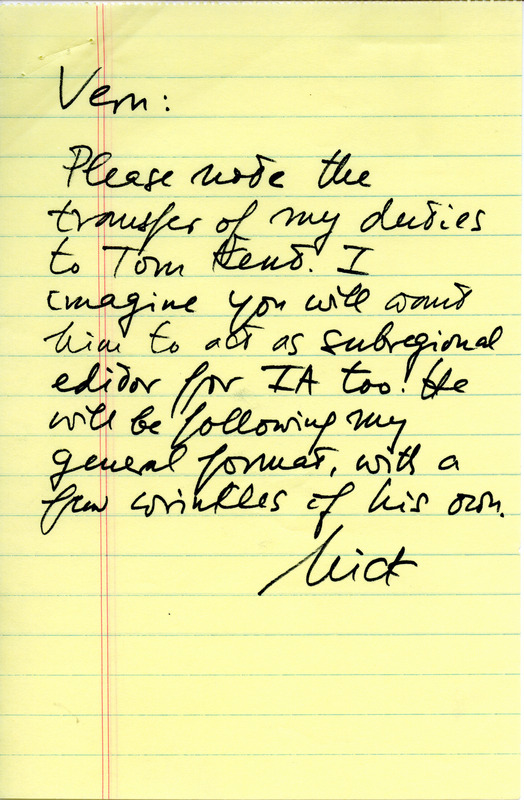 Vern:
Please note the
transfer of my duties
to Tom Kent. I
imagine you will want
him to act as subregional
editor for IA too. He
will be following my
general format, with a
few wrinkles of his own.
Nick